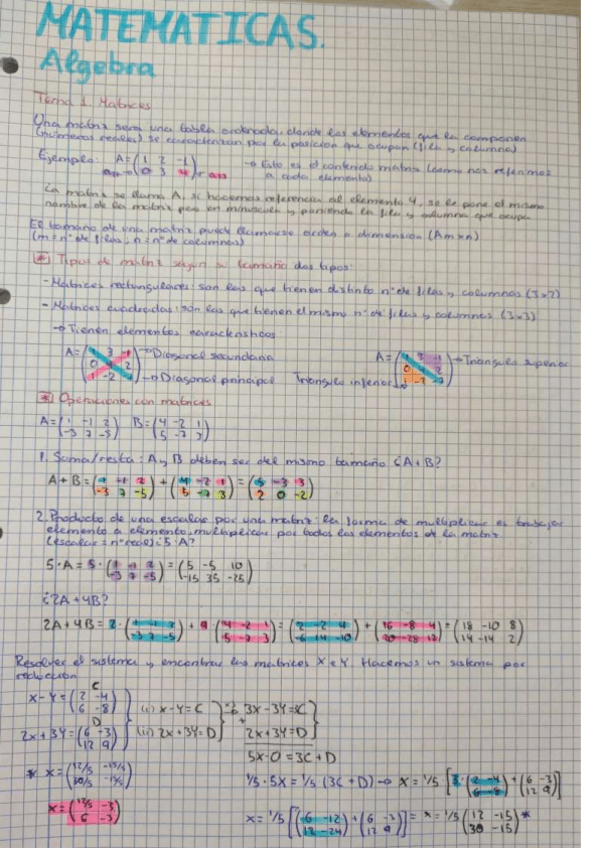 MATEMATICAS.
Algebra
Tema 1. Matrices
Una matriz sera una tabla ordenada, donde los elementos que la componen
(números reales) se caracterizan por la posicion que ocupan (fila y columna)
Ejemplo: A=(1 2 -1 / 0 3 4) → Esto es el contenido matriz (como nos referimos
a cada elemento)
La matriz se llama A, si hacemos referencia al elemento 4, se le pone el mismo
nombre de la matriz pero en minuscula y poniendo la fila y columna que ocupa
El tamaño de una matriz puede llamarse orden o dimension (Amxn)
(m = nº de filas, n = nº de columnas)
* Tipos de matriz según su tamaño dos tipos:
- Matrices rectangulares: son las que tienen distinto nº de filas y columnas (3x2)
- Matrices cuadradas: son las que tienen el mismo nº de filas y columnas (3x3)
→ Tienen elementos caracteristicos:
A= → Diagonal secundaria A= → Triangulo superior
→ Diagonal principal Triangulo inferior
* Operaciones con matrices
A=(1 -1 2 / -3 7 -5) B=(4 -2 1 / 5 -7 3)
1. Suma/resta: A y B deben ser del mismo tamaño ¿A+B?
A+B=(1 -1 2 / -3 7 -5)+(4 -2 1 / 5 -7 3)=(5 -3 3 / 2 0 -2)
2. Producto de una escalar por una matriz: la forma de multiplicar es trabajar
elemento a elemento, multiplicar por todos los elementos de la matriz
(escalar = nº real) ¿5·A?
5·A = 5·(1 -1 2 / -3 7 -5)=(5 -5 10 / -15 35 -25)
¿2A+4B?
2A+4B = 2·(1 -1 2 / -3 7 -5) + 4·(4 -2 1 / 5 -7 3)=(2 -2 4 / -6 14 -10)+(16 -8 4 / 20 -28 12)=(18 -10 8 / 14 -14 2)
Resolver el sistema y encontrar las matrices X e Y. Hacemos un sistema por
reducción
x-Y=(2 -4 / 6 -8) C (i) x-Y=C 3x-3Y=3C
2x+3Y=(6 -3 / 12 9) D (ii) 2x+3Y=D + 2x+3Y=D
5x·0=3C+D
* x=(12/5 -15/5 / 30/5 -15/5) 1/5·5x=1/5(3C+D) → x=1/5[3·(2 -4 / 6 -8)+(6 -3 / 12 9)]
x=(12/5 -3 / 6 -3) x=1/5[(6 -12 / 12 -24)+(6 -3 / 12 9)]= x=1/5(12 -15 / 30 -15)*